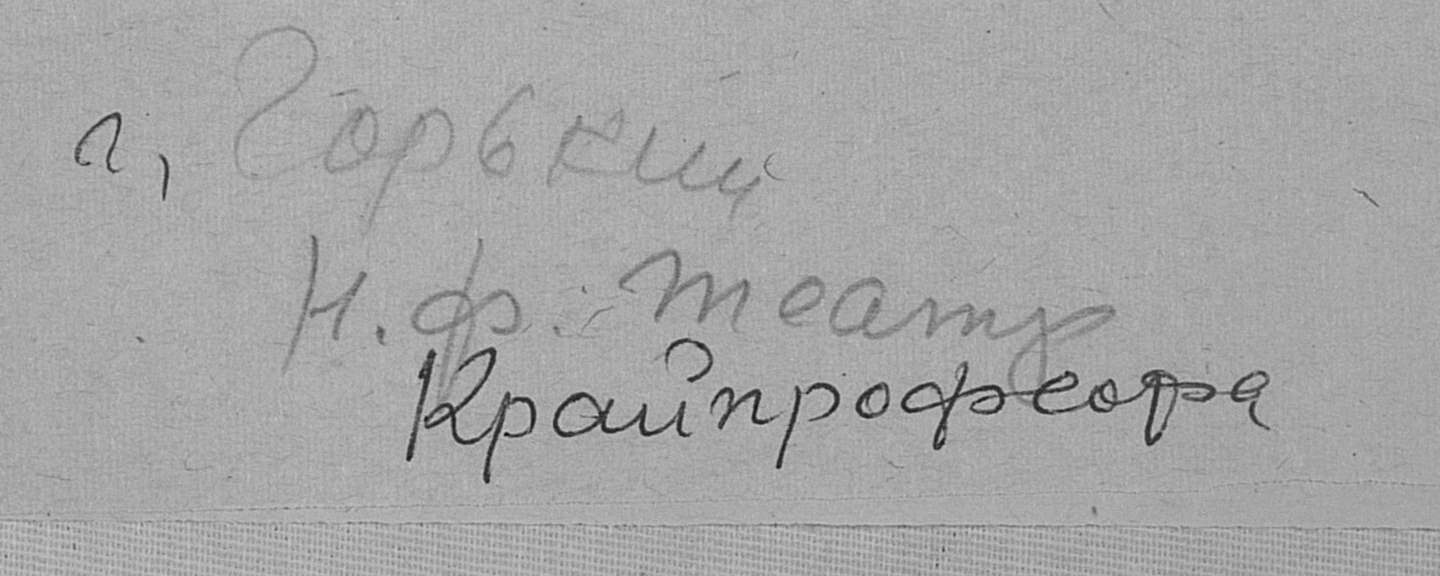 г, Горький
Н. ф. театр
Крайпрофсофа